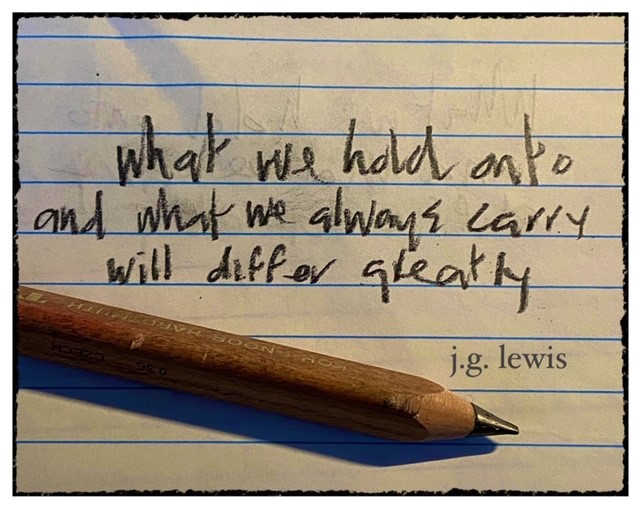 what we hold onto
and what we always carry
will differ greatly
j.g. lewis
KOH-I-NOOR HARDTMUTH
CZECH